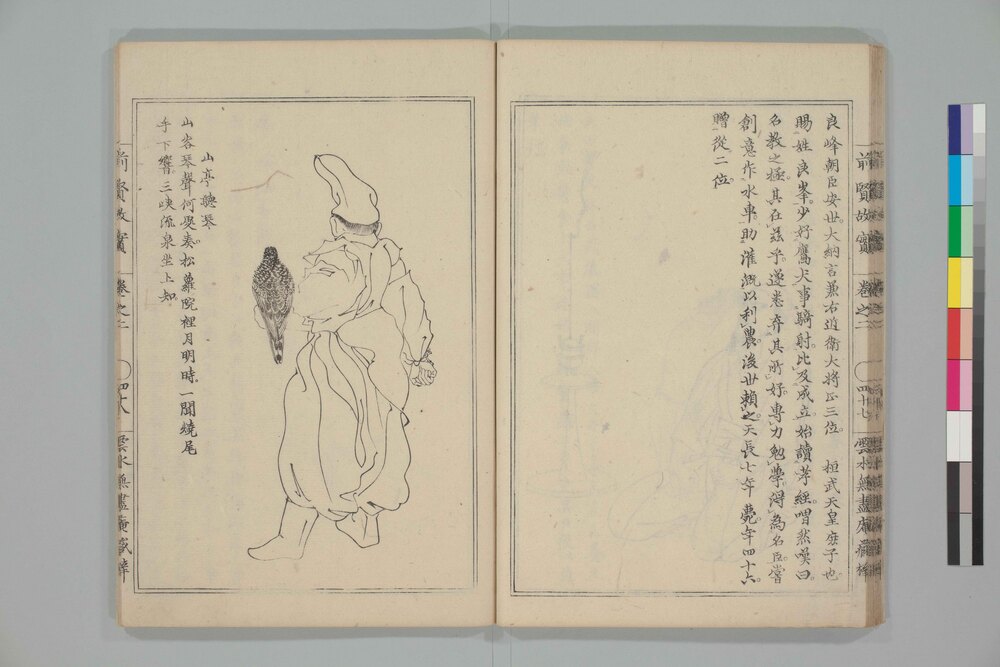 良峰朝臣安世大納言兼右近衛大將正三位。 桓武天皇庶子也
賜姓良峯。少好鷹犬事騎射。比及成立。始讀孝經。喟然嘆曰
名教之極。其在茲乎。遂悉弃其所好。專力勉學。得為名臣。嘗
創意作水車。助灌漑以利農。後世賴之。天長七年薨。年四十六。
贈從二位。
前賢故實
卷之二
四十七
雲水無盡庵藏梓
山亭聽琴
山客琴聲何處奏。松蘿院裡月明時。一聞燒尾
手下響。三峽流泉坐上知。
前賢故實
卷之二
四十八
雲水無盡庵藏梓